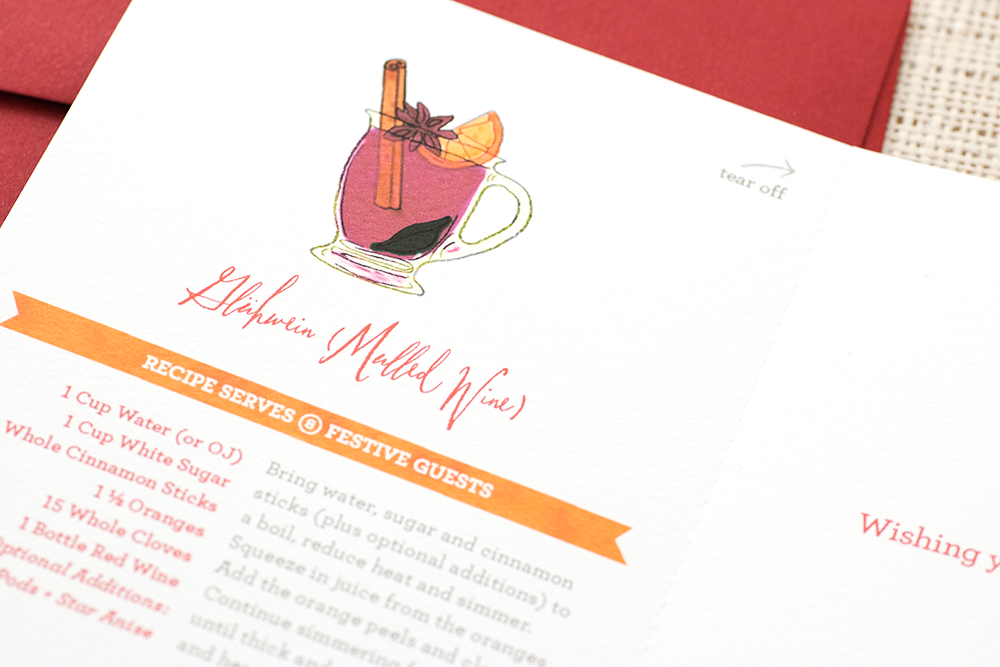 tear off
Glühwein (Mulled Wine)
RECIPE SERVES 8 FESTIVE GUESTS
1 Cup Water (or OJ)
1 Cup White Sugar
Whole Cinnamon Sticks
1 ½ Oranges
15 Whole Cloves
1 Bottle Red Wine
Optional Additions:
Pods + Star Anise
Bring water, sugar and cinnamon
sticks (plus optional additions) to
a boil, reduce heat and simmer.
Squeeze in juice from the oranges.
Add the orange peels and
Continue simmering
until thick and
and
Wishing